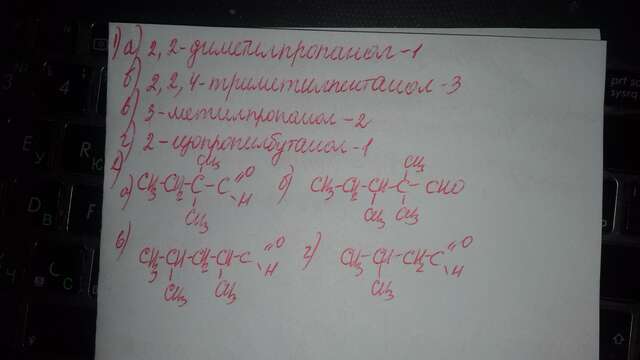 1) а) 2,2-диметилпропанол-1
б) 2,2,4-триметилпентанол-3
в) 3-метилпропанол-2
г) 2-изопропилбутанол-1
2)
CH₃
а) CH₃-CH₂-C-C=O H
CH₃
CH₃
б) CH₃-CH₂-CH-C-CHO
CH₃ CH₃
в) CH₃-CH-CH₂-CH-C=O H
CH₃ CH₃
г) CH₃-CH-CH₂-C=O H
CH₃
prt sc
sysrq
4
Е У
R К
D В
F
C С